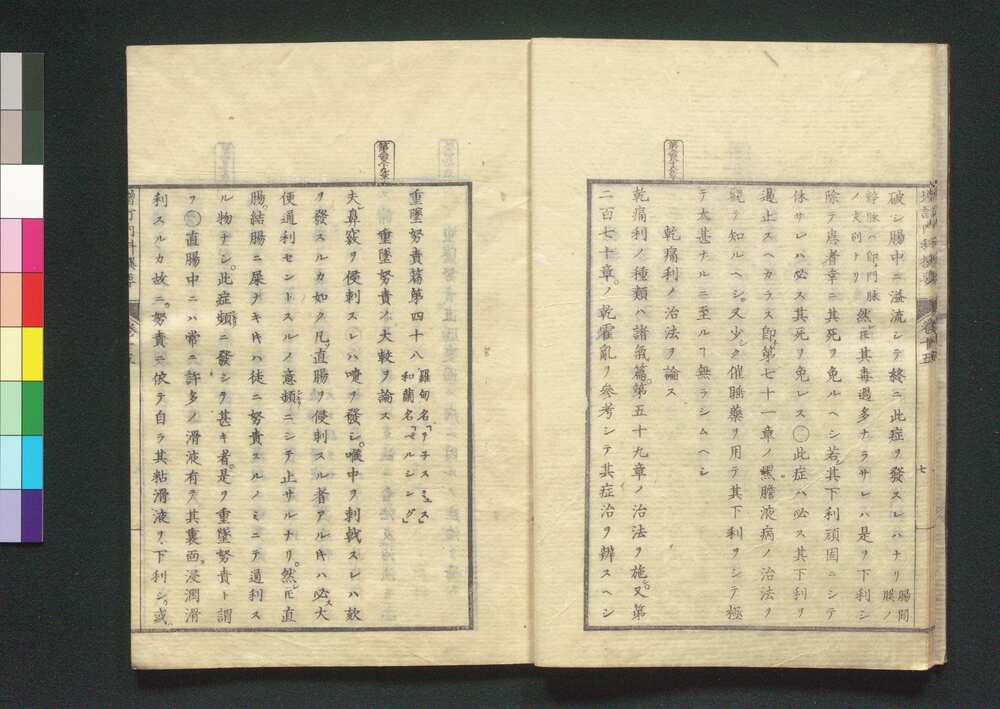 破シ腸中ニ溢流シテ終ニ此症ヲ發スレハナリ腸間膜ノ
幹脉ハ卽門脉ノ支別ナリ然𪜈其毒過多ナラサレハ是ヲ下利シ
除テ患者幸ニ其死ヲ免ルヘシ若其下利頑固ニシテ
休サレハ必ス其死ヲ免レス〇此症ハ必ス其下利ヲ
遏止スヘカラス卽第七十一章ノ黑膽液病ノ治法ヲ
觀テ知ルヘシ又少シク催睡藥ヲ用テ其下利ヲシテ極
テ太甚ナルニ至ルヿ無ラシムヘシ
乾痛利ノ治法ヲ論ス
乾痛利ノ種類ハ諸氣篇第五十九章ノ治法ヲ施シ又第
二百七十章ノ乾霍亂ヲ參考シテ其症治ヲ辨スヘシ
七
重墜努責篇第四十八
羅甸名「テネスミュス」
和蘭名「ペルシング」
重墜努責ノ大較ヲ論ス
夫鼻竅ヲ侵刺スレハ嚏ヲ發シ喉中ヲ刺戟スレハ欬
ヲ發スルカ如ク凡直腸ヲ侵刺スル者アル𪜈ハ必ス大
便通利セントスルノ意頻ニシテ止サルナリ然𪜈直
腸結腸ニ屎ナキ𪜈ハ徒ニ努責スルノミニテ通利ス
ル物ナシ此症頻ニ發シテ甚キ者是ヲ重墜努責ト謂
フ〇直腸中ニハ常ニ許多ノ滑液有テ其裏面浸潤滑
利スルカ故ニ努責ニ依テ自ラ其粘滑液ヲ下利シ或